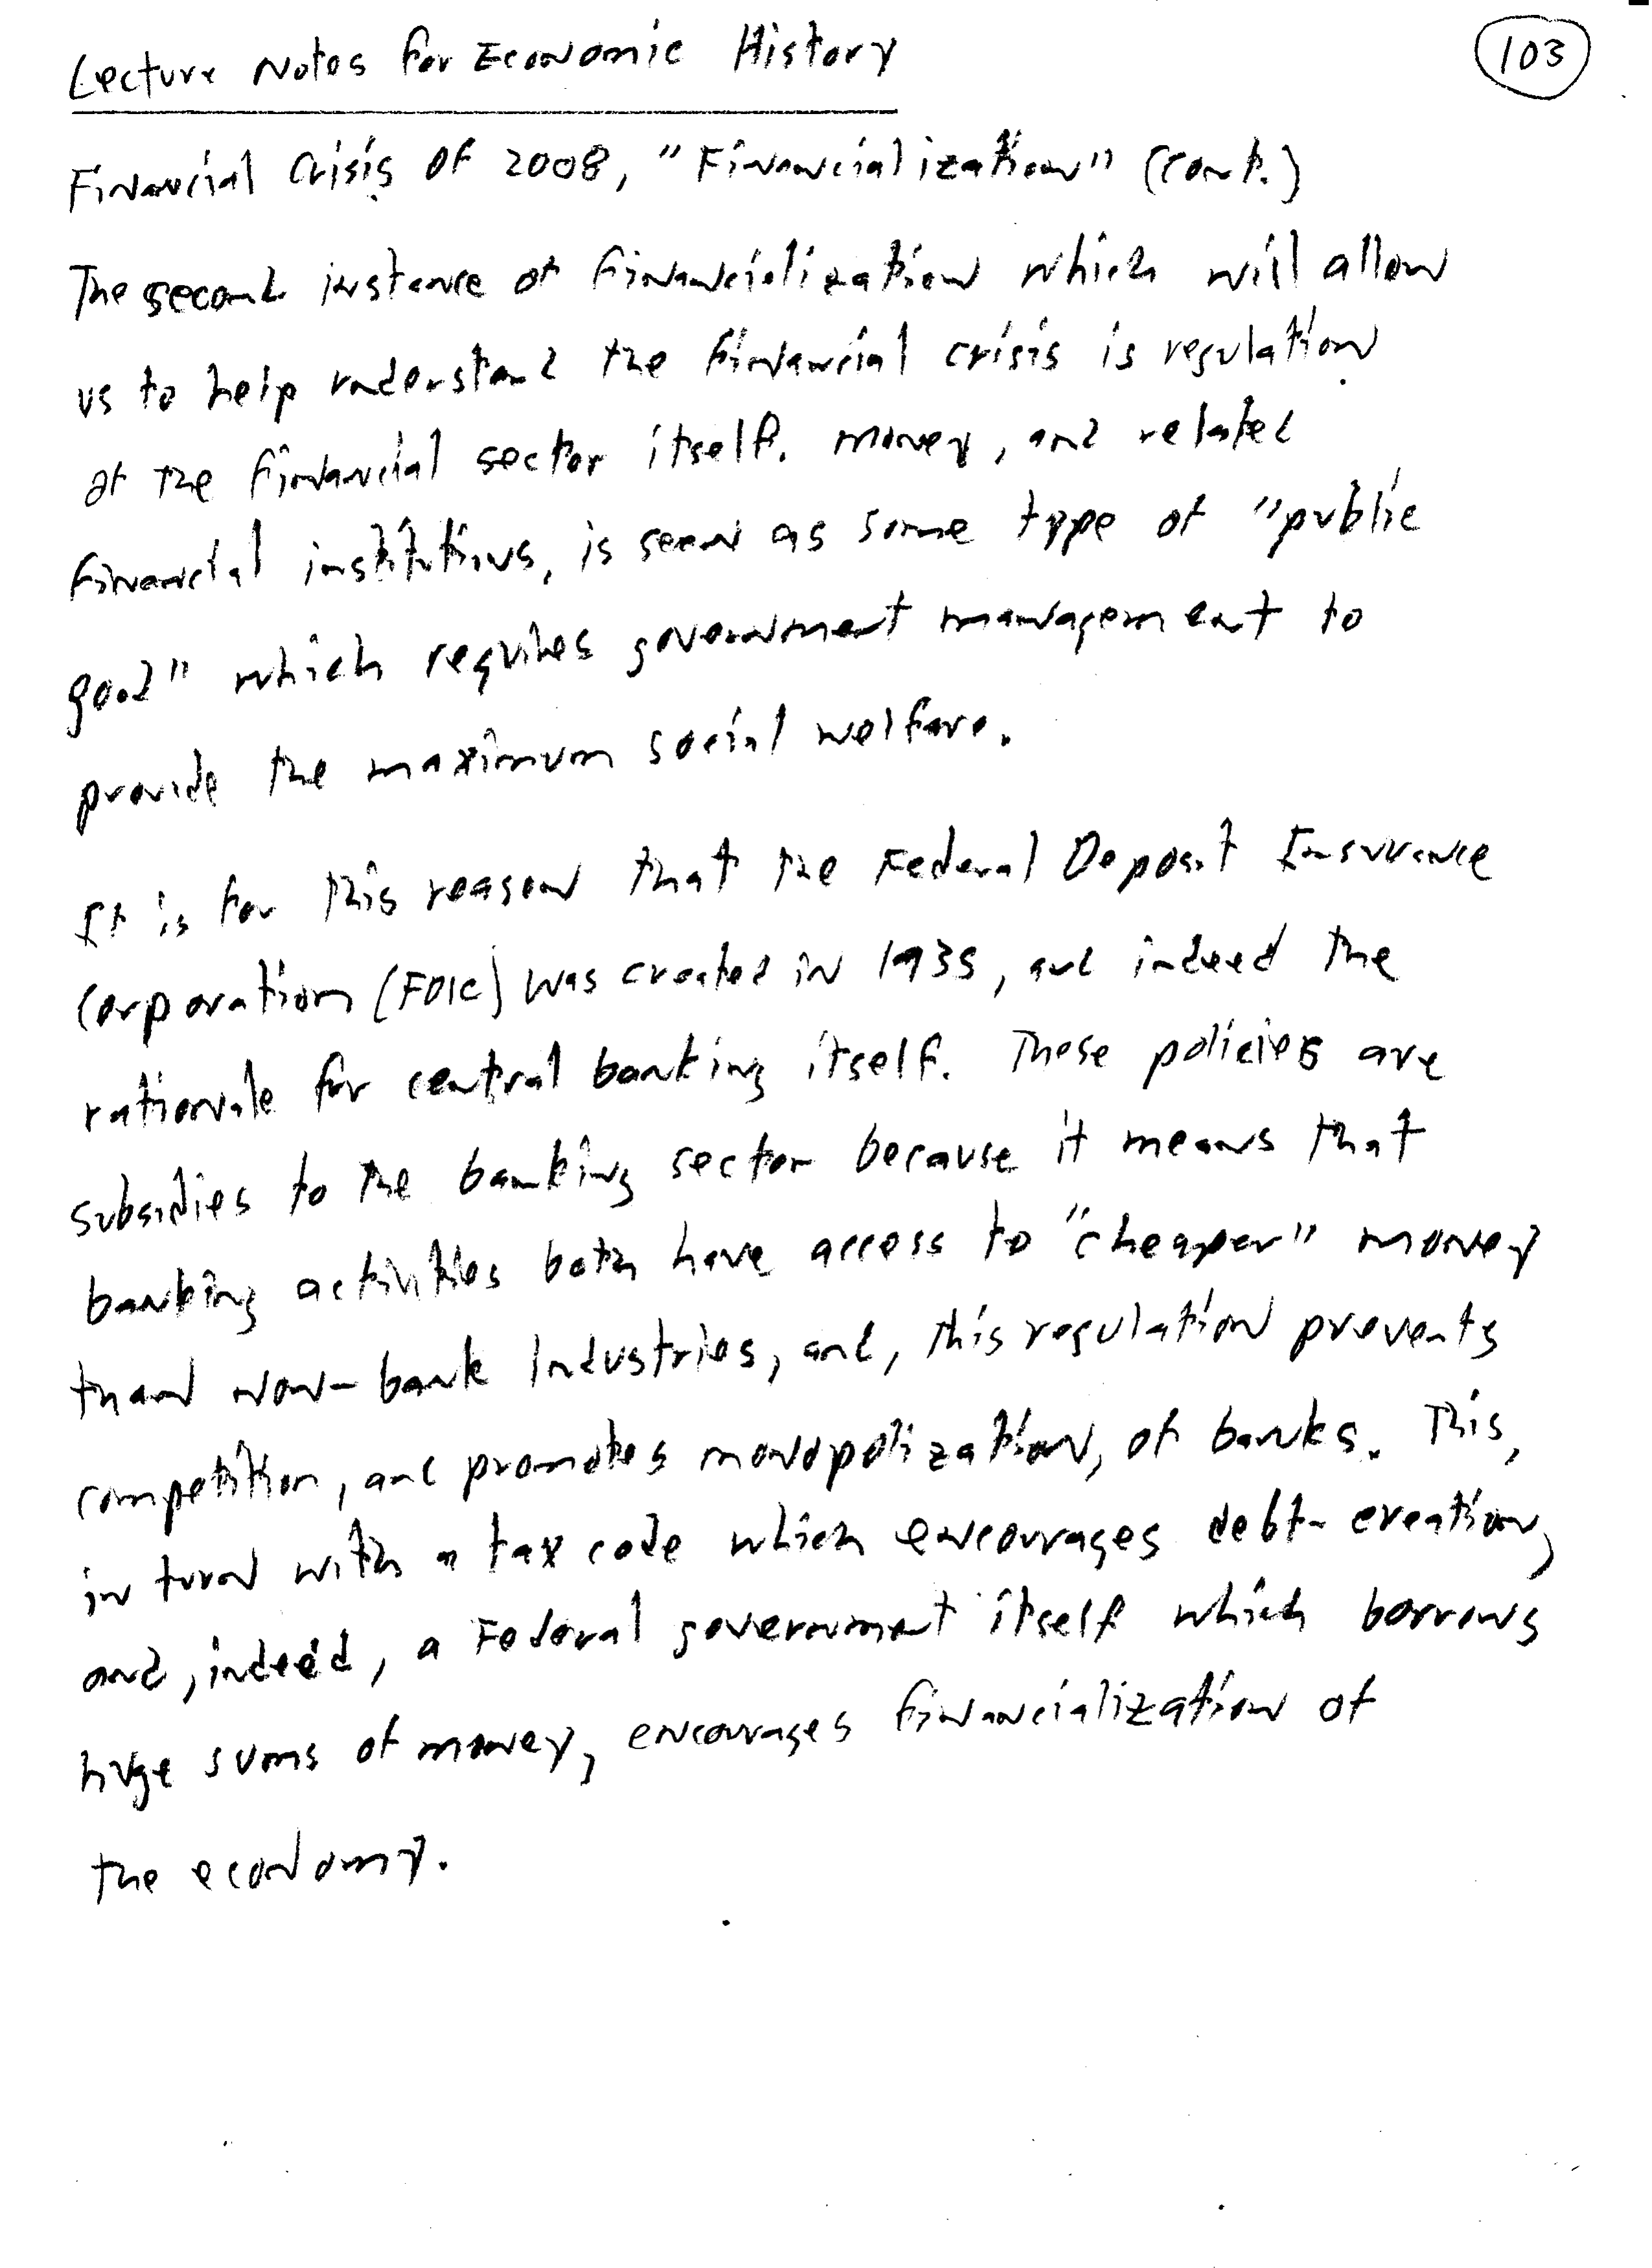 Lecture Notes for Economic History
103
Financial Crisis of 2008, "Financialization" (cont.)
The second instance of financialization which will allow
us to help understand the financial crisis is regulation
of the financial sector itself. Money, and related
financial institutions, is seen as some type of "public
good" which requires government management to
provide the maximum social welfare.
It is for this reason that the Federal Deposit Insurance
Corporation (FDIC) was created in 1935, and indeed the
rationale for central banking itself. These policies are
subsidies to the banking sector because it means that
banking activities both have access to "cheaper" money
than non-bank industries, and, this regulation prevents
competition, and promotes monopolization, of banks. This,
in turn with a tax code which encourages debt-creation,
and, indeed, a Federal government itself which borrows
huge sums of money, encourages financialization of
the economy.